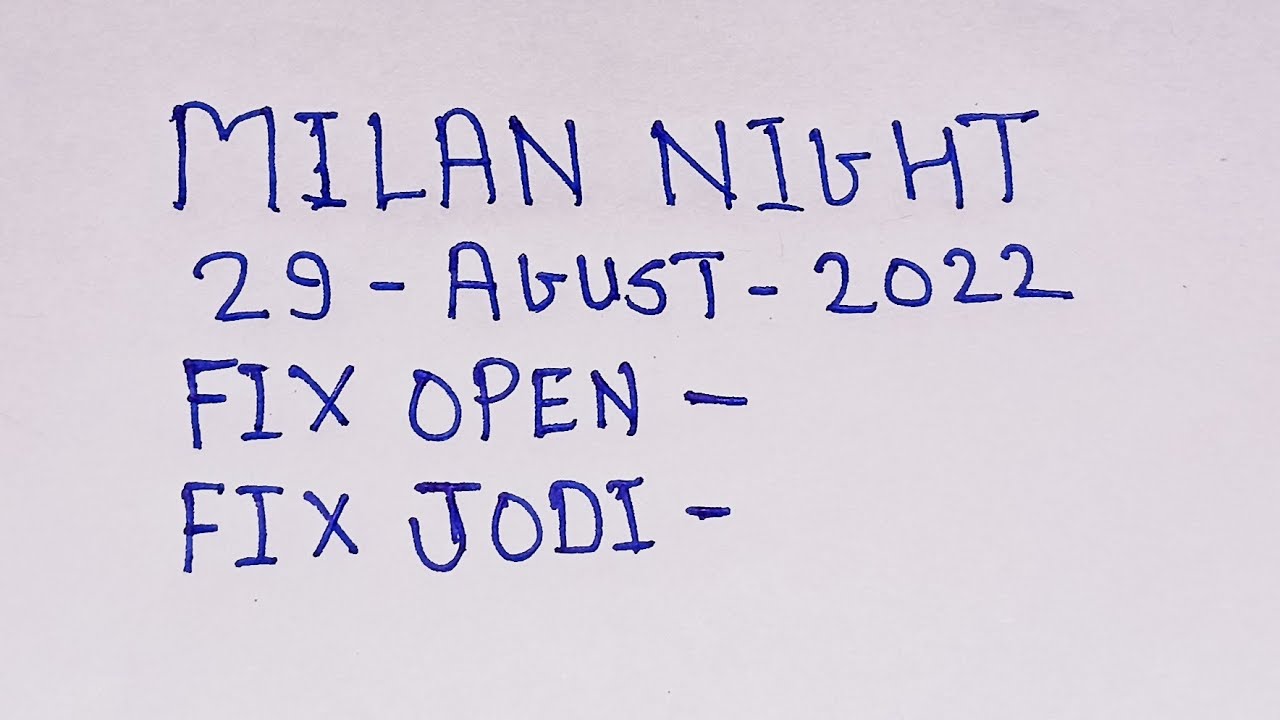 MILAN NIGHT
29 - AGUST - 2022
FIX OPEN -
FIX JODI -